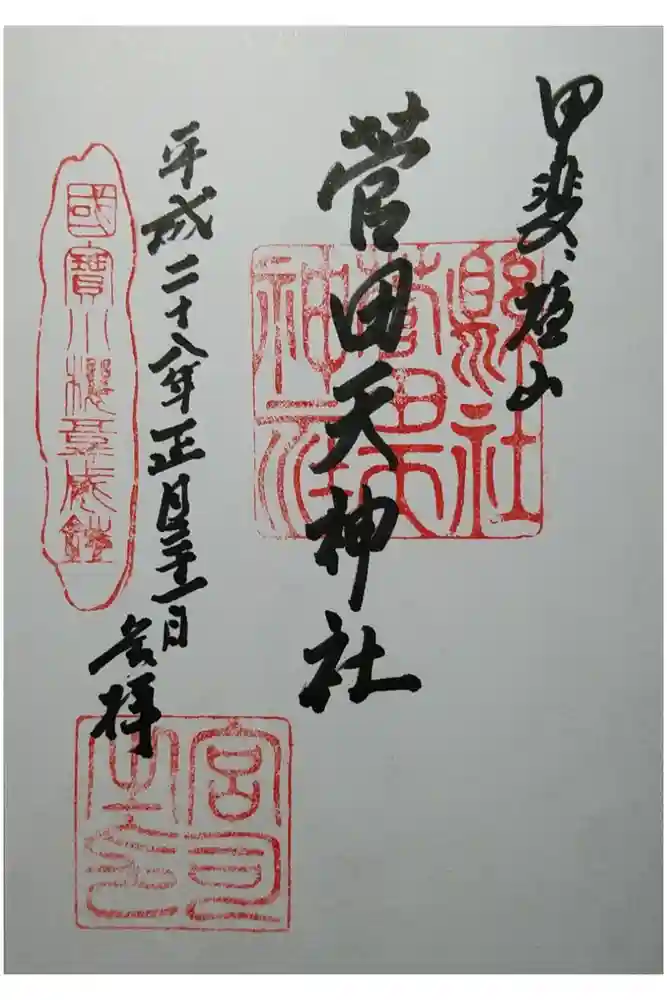 甲斐、塩山
菅田天神社
縣社菅田天神社
平成二十八年正月三十一日
参拝
國寶小桜韋威鎧
宮司之印